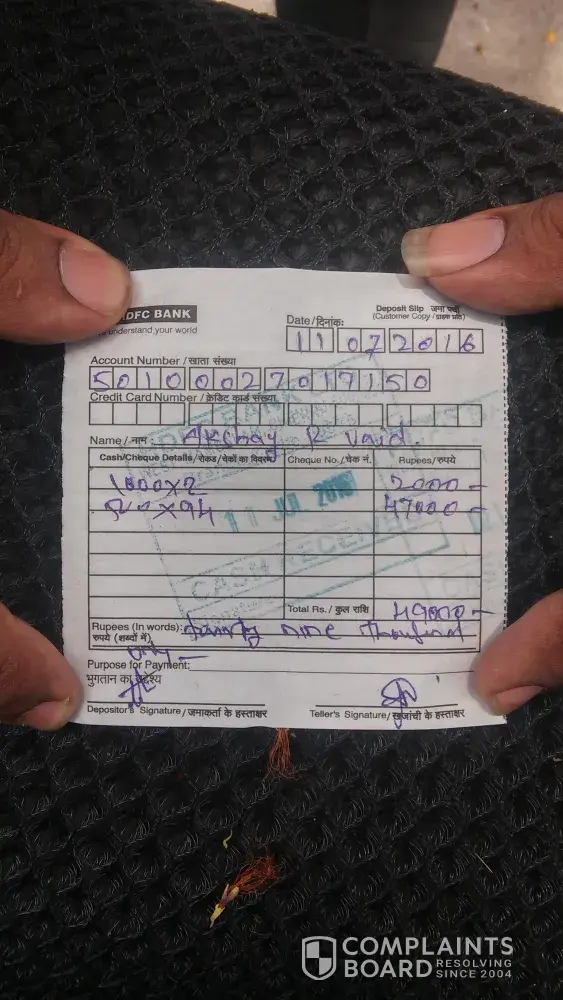 DFC BANK
understand your world
Deposit Slip जमा पर्ची
(Customer Copy / ग्राहक प्रति)
Date / दिनांक:
11072016
Account Number / खाता संख्या
50100027017150
Credit Card Number / क्रेडिट कार्ड संख्या
Name / नाम : Akshay R Vaid.
Cash/Cheque Details / रोकड / चेकों का विवरण Cheque No. / चेक नं. Rupees/रुपये
1000x2 2000-
500x94 47000-
11 JUL 2016
CASH RECEIVED
Total Rs. / कुल राशि 49000-
Rupees (In words): nine Thousand
रुपये (शब्दों में) only-
Purpose for Payment:
भुगतान का उद्देश्य
Depositor's Signature / जमाकर्ता के हस्ताक्षर Teller's Signature / खजांची के हस्ताक्षर
COMPLAINTS
BOARD RESOLVING
SINCE 2004